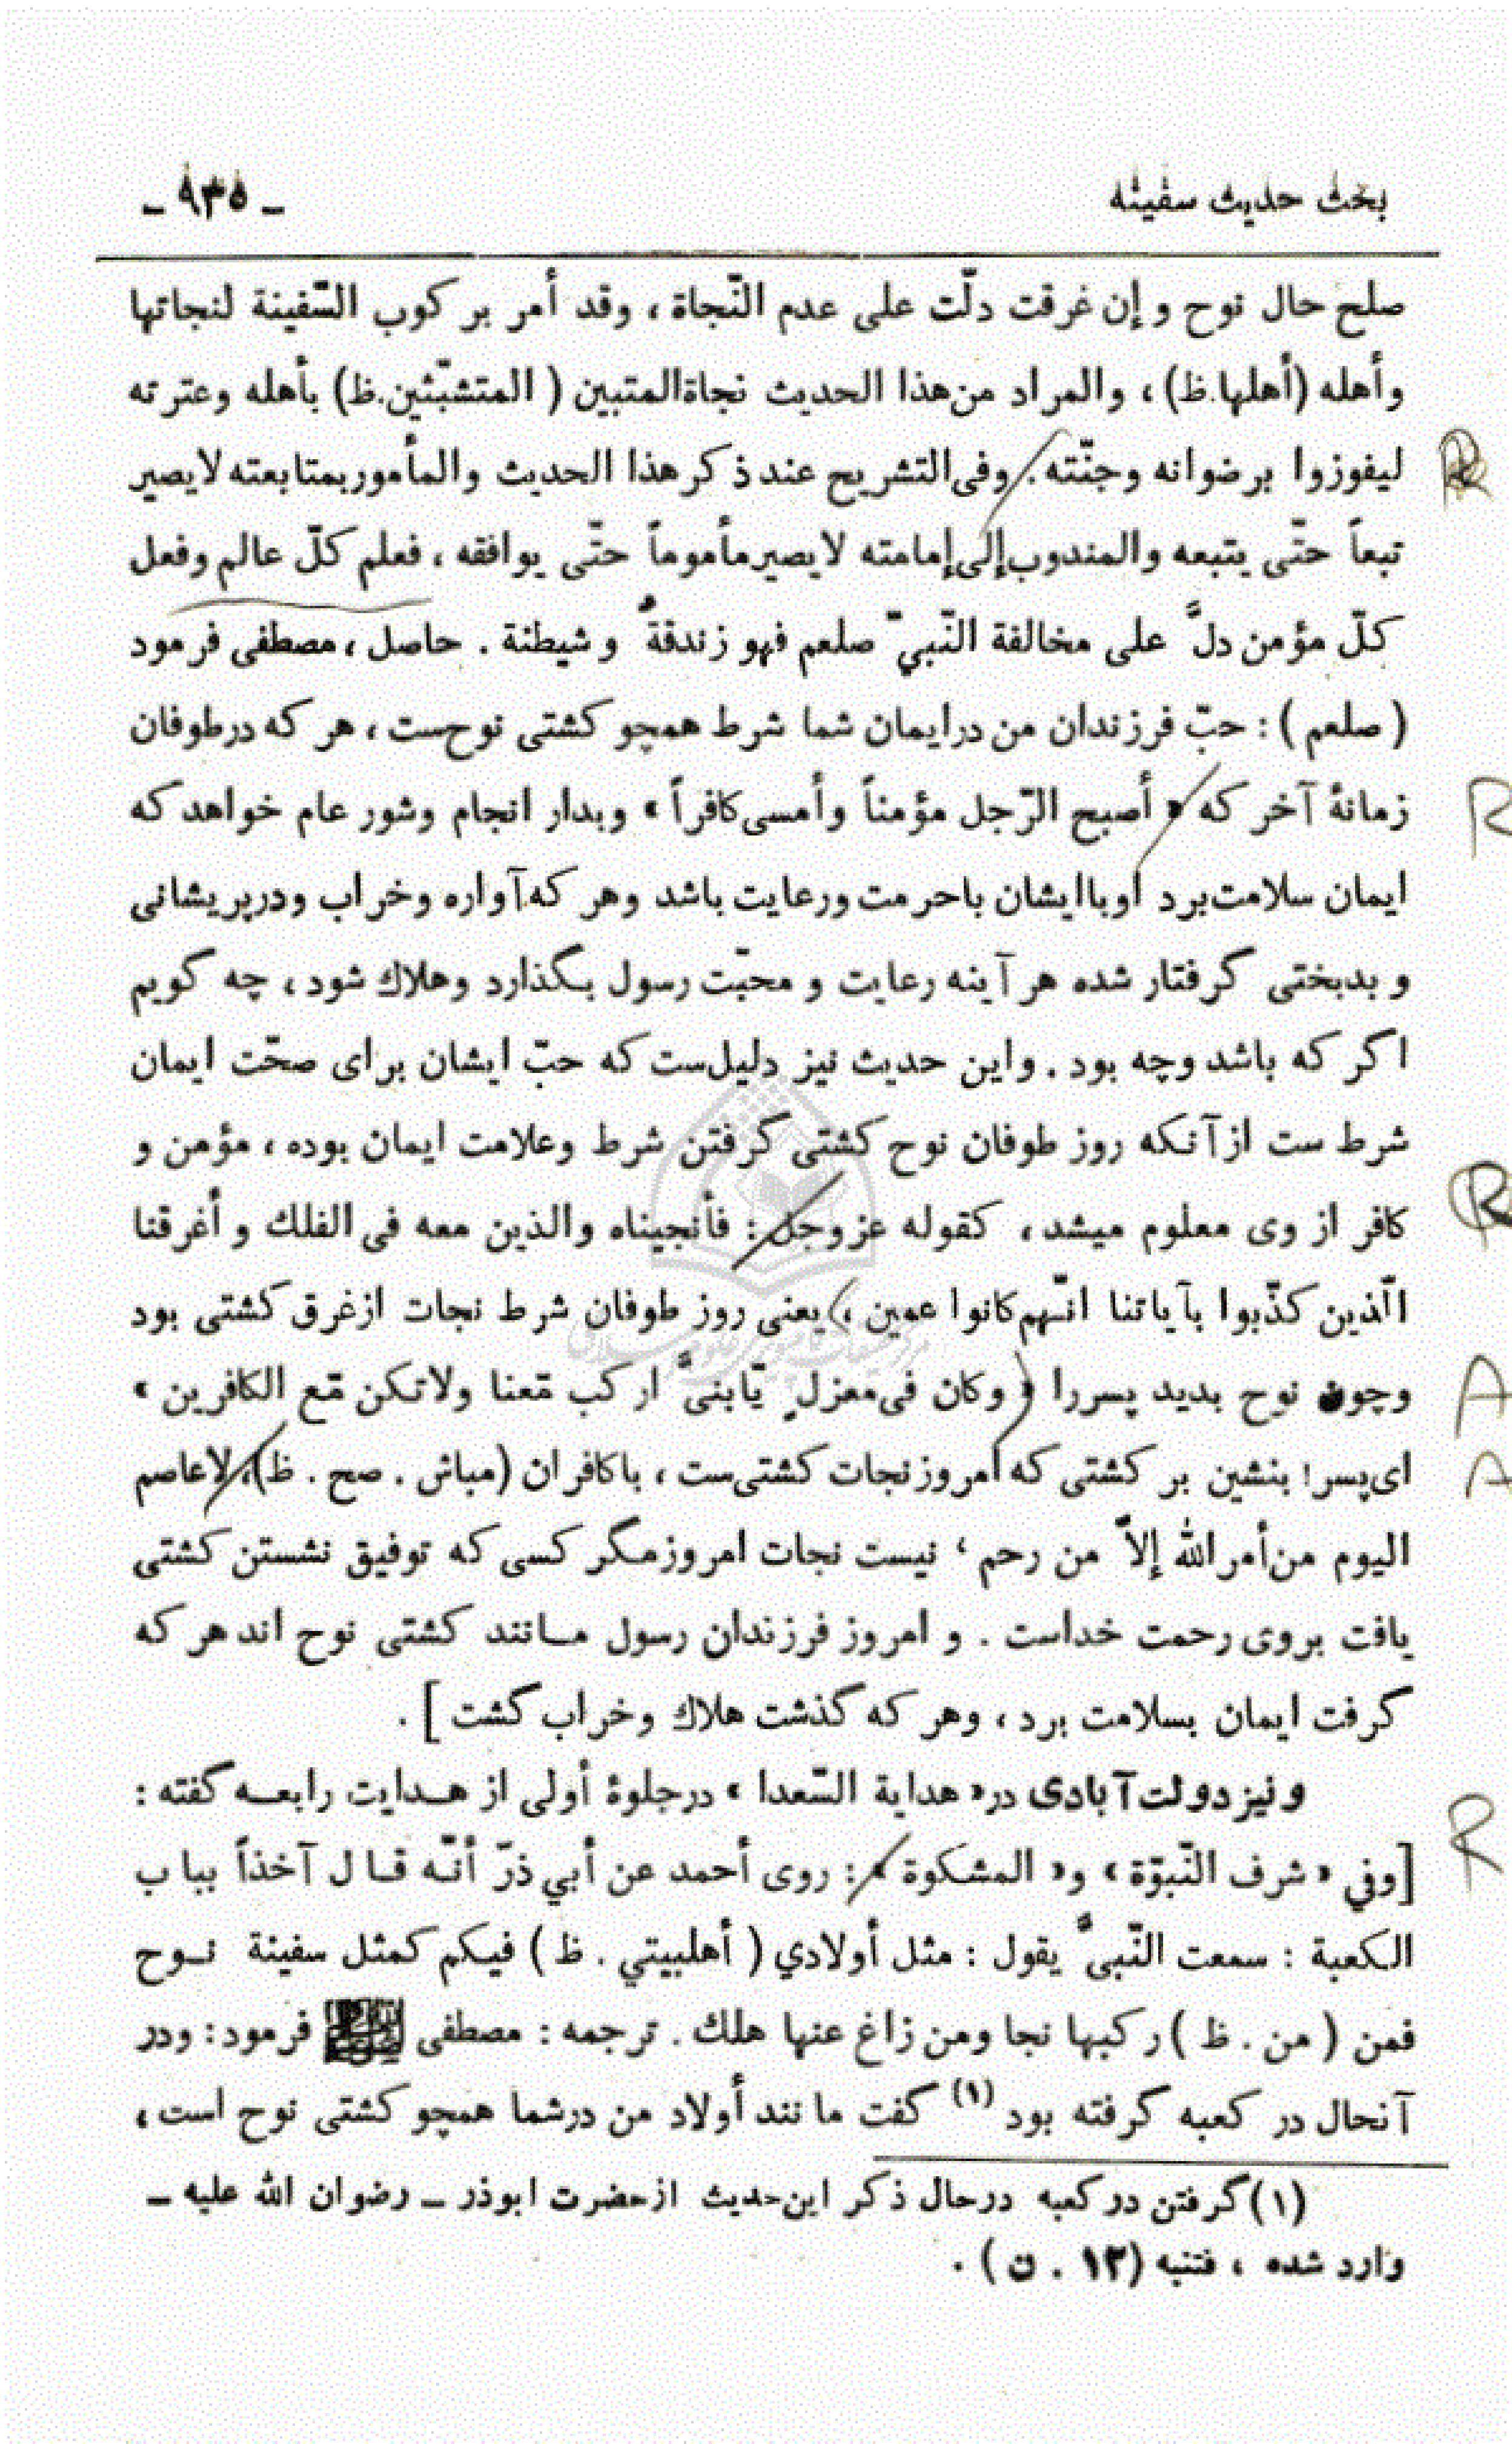 بحث حدیث سفینه
ـ ۹۳۵ ـ
صلح حال نوح و إن غرقت دلّت علی عدم النّجاة ، وقد أمر بر کوب السّفینة لنجاتها
وأهله (أهلها.ظ) ، والمراد من هذا الحدیث نجاةالمتبین ( المتشبّثین.ظ) بأهله وعترته
لیفوزوا برضوانه وجنّته . وفی التشریح عند ذکر هذا الحدیث والمأمور بمتابعته لایصیر
تبعاً حتّی یتبعه والمندوب إلی إمامته لایصیر مأموماً حتّی یوافقه ، فعلم کلّ عالم وفعل
کلّ مؤمن دلَّ علی مخالفة النّبيّ صلعم فهو زندقةٌ و شیطنة . حاصل ، مصطفی فرمود
( صلعم ) : حبّ فرزندان من درایمان شما شرط همچو کشتی نوح‌ست ، هر که درطوفان
زمانهٔ آخر که « أصبح الرّجل مؤمناً وأمسی کافراً » وبدار انجام وشور عام خواهد که
ایمان سلامت‌برد اوباایشان باحرمت ورعایت باشد وهر که آواره وخراب ودرپریشانی
و بدبختی گرفتار شده هر آینه رعایت و محبّت رسول بگذارد وهلاك شود ، چه گویم
اگر که باشد وچه بود . واین حدیث نیز دلیل‌ست که حبّ ایشان برای صحّت ایمان
شرط ست ازآنکه روز طوفان نوح کشتی گرفتن شرط وعلامت ایمان بوده ، مؤمن و
کافر از وی معلوم میشد ، کقوله عزوجل : فأنجیناه والذین معه فی الفلك و أغرقنا
الّذین کذّبوا بآیاتنا انّهم کانوا عمین ، یعنی روز طوفان شرط نجات ازغرق کشتی بود
وچون نوح بدید پسررا « وکان فی معزلٍ یّابنیَّ ارکب مّعنا ولاتکن مّع الکافرین »
ای‌پسر! بنشین بر کشتی که امروزنجات کشتی‌ست ، باکافران (مباش . صح . ظ) ، لاعاصم
الیوم من‌أمر الله إلاّ من رحم ، نیست نجات امروزمگر کسی که توفیق نشستن کشتی
یافت بروی رحمت خداست . و امروز فرزندان رسول مـانند کشتی نوح اند هر که
گرفت ایمان بسلامت برد ، وهر که گذشت هلاك وخراب گشت ] .
و نیز دولت آبادی در« هدایة السّعدا » درجلوهٔ أولی از هـدایت رابعـه گفته :
[وفي « شرف النّبوّة » و« المشکوة » : روی أحمد عن أبي ذرّ أنّـه قـال آخذاً بباب
الکعبة : سمعت النّبیَّ یقول : مثل أولادي ( أهلبیتي . ظ ) فیکم کمثل سفینة نـوح
فمن ( من . ظ ) رکبها نجا ومن زاغ عنها هلك . ترجمه : مصطفی ﷺ فرمود: ودر
آنحال در کعبه گرفته بود (۱) گفت مانند أولاد من درشما همچو کشتی نوح است ،
(۱) گرفتن در کعبه درحال ذکر این‌حدیث ازحضرت ابوذر ـ رضوان الله علیه ـ
وارد شده ، فتنبه (۱۲ . ن ) .
R
R
R
A
A
R